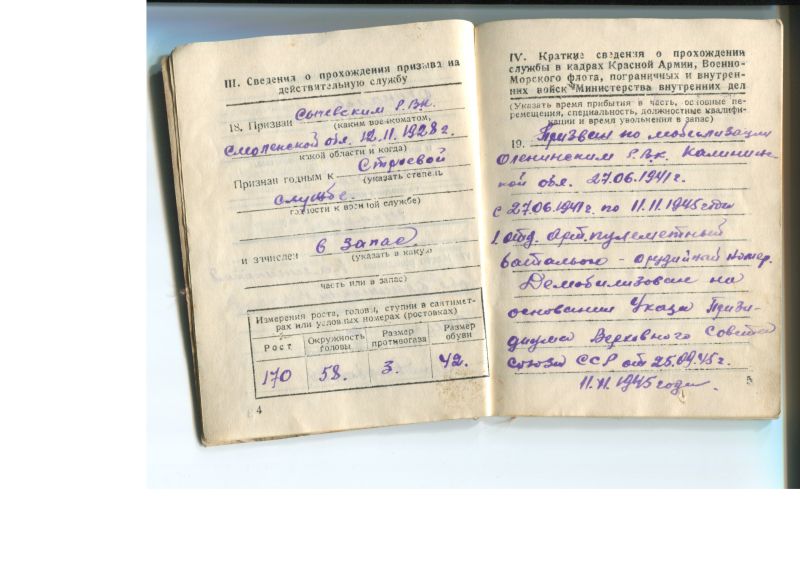 III. Сведения о прохождении призыва на
действительную службу
18. Призван Сычевским Р.В.К.
(каким военкоматом,
Смоленской обл. 12.11.1928 г.
какой области и когда)
Признан годным к Строевой
(указать степень
службе.
годности к военной службе)
и зачислен в запас
(указать в какую
часть или в запас)
Измерения роста, головы, ступни в сантимет-
рах или условных номерах (ростовках)
Рост Окружность головы Размер противогаза Размер обуви
170 58. 3. 42.
4
IV. Краткие сведения о прохождении
службы в кадрах Красной Армии, Военно-
Морского флота, пограничных и внутрен-
них войск Министерства внутренних дел
(Указать время прибытия в часть, основные пе-
ремещения, специальность, должностные квалифи-
кации и время увольнения в запас)
19. Призван по мобилизации
Оленинским Р.В.К. Калинин-
кой обл. 27.06.1941 г.
с 27.06.1941 г. по 11.11.1945 года
1 отд. арт. пулеметный
батальон - орудийный номер.
Демобилизован на
основании Указа Прези-
диума Верховного Совета
Союза ССР от 25.09.45 г.
11.11.1945 года.
5